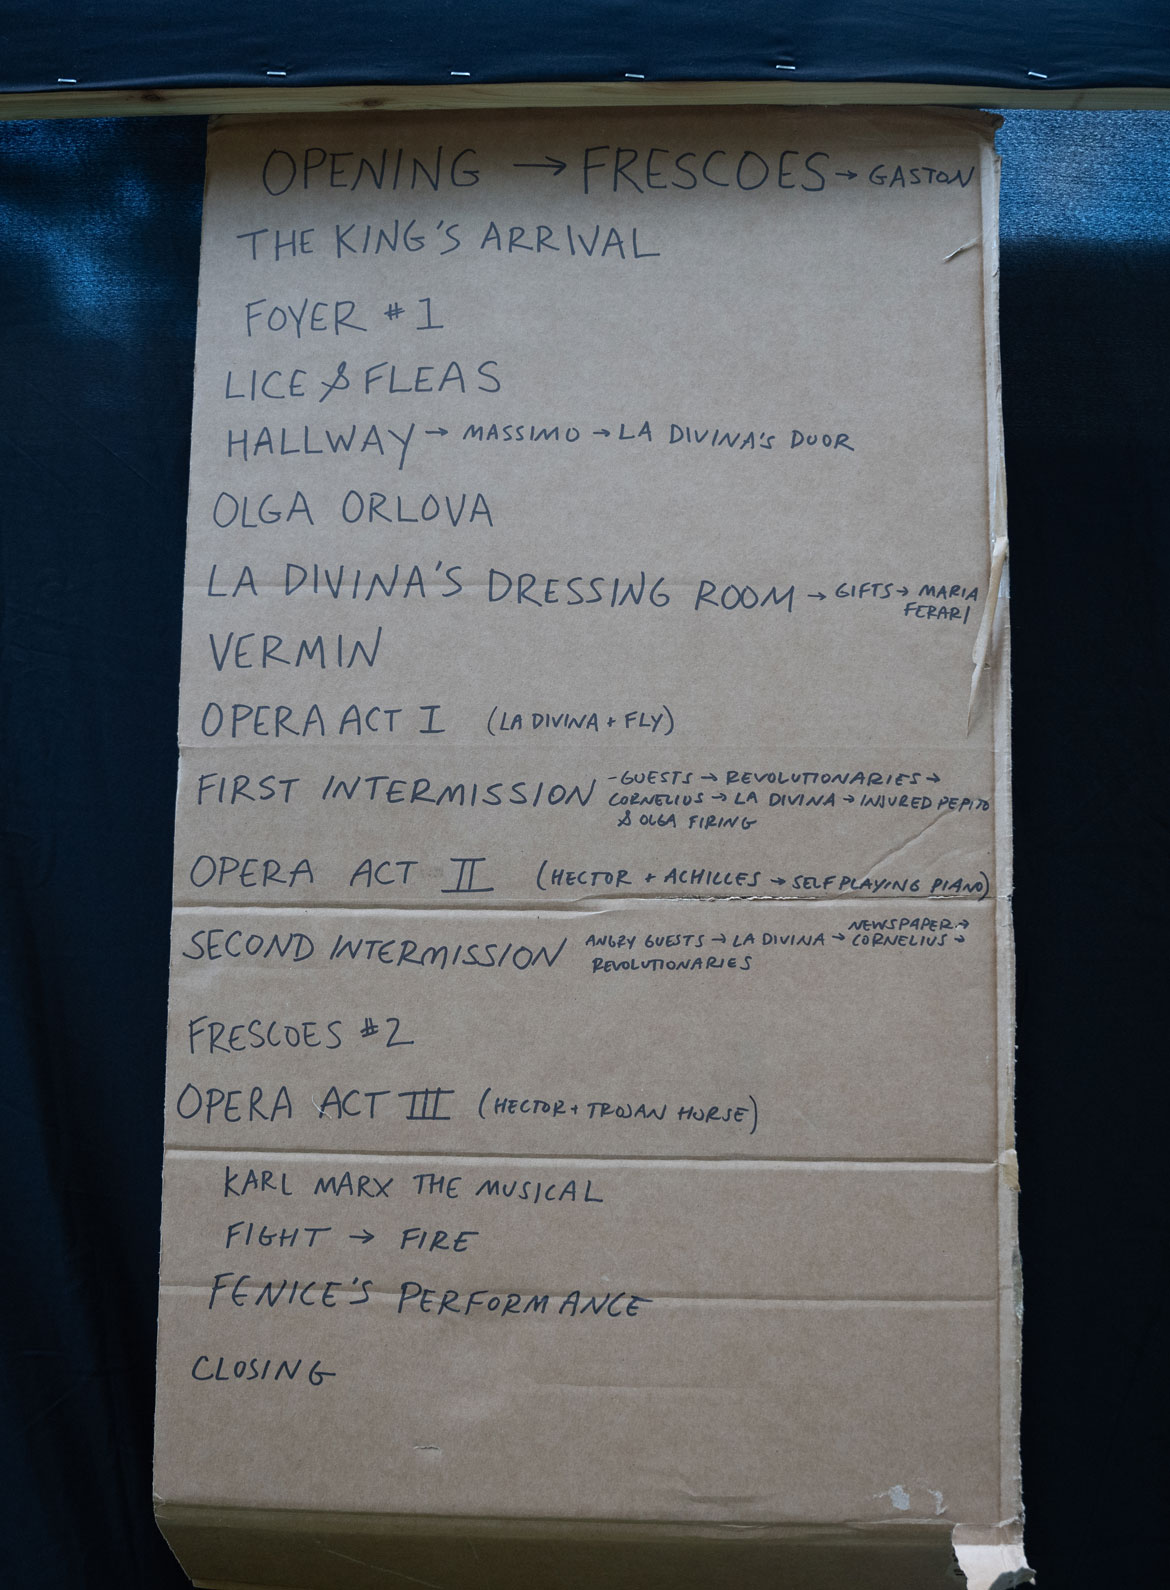 OPENING → FRESCOES → GASTON
THE KING'S ARRIVAL
FOYER #1
LICE & FLEAS
HALLWAY → MASSIMO → LA DIVINA'S DOOR
OLGA ORLOVA
LA DIVINA'S DRESSING ROOM → GIFTS → MARIA
FERARI
VERMIN
OPERA ACT I (LA DIVINA + FLY)
FIRST INTERMISSION - GUESTS → REVOLUTIONARIES →
CORNELIUS → LA DIVINA → INJURED PEPITO
& OLGA FIRING
OPERA ACT II (HECTOR + ACHILLES → SELF PLAYING PIANO)
SECOND INTERMISSION ANGRY GUESTS → LA DIVINA → NEWSPAPER →
CORNELIUS →
REVOLUTIONARIES
FRESCOES #2
OPERA ACT III (HECTOR + TROJAN HORSE)
KARL MARX THE MUSICAL
FIGHT → FIRE
FENICE'S PERFORMANCE
CLOSING